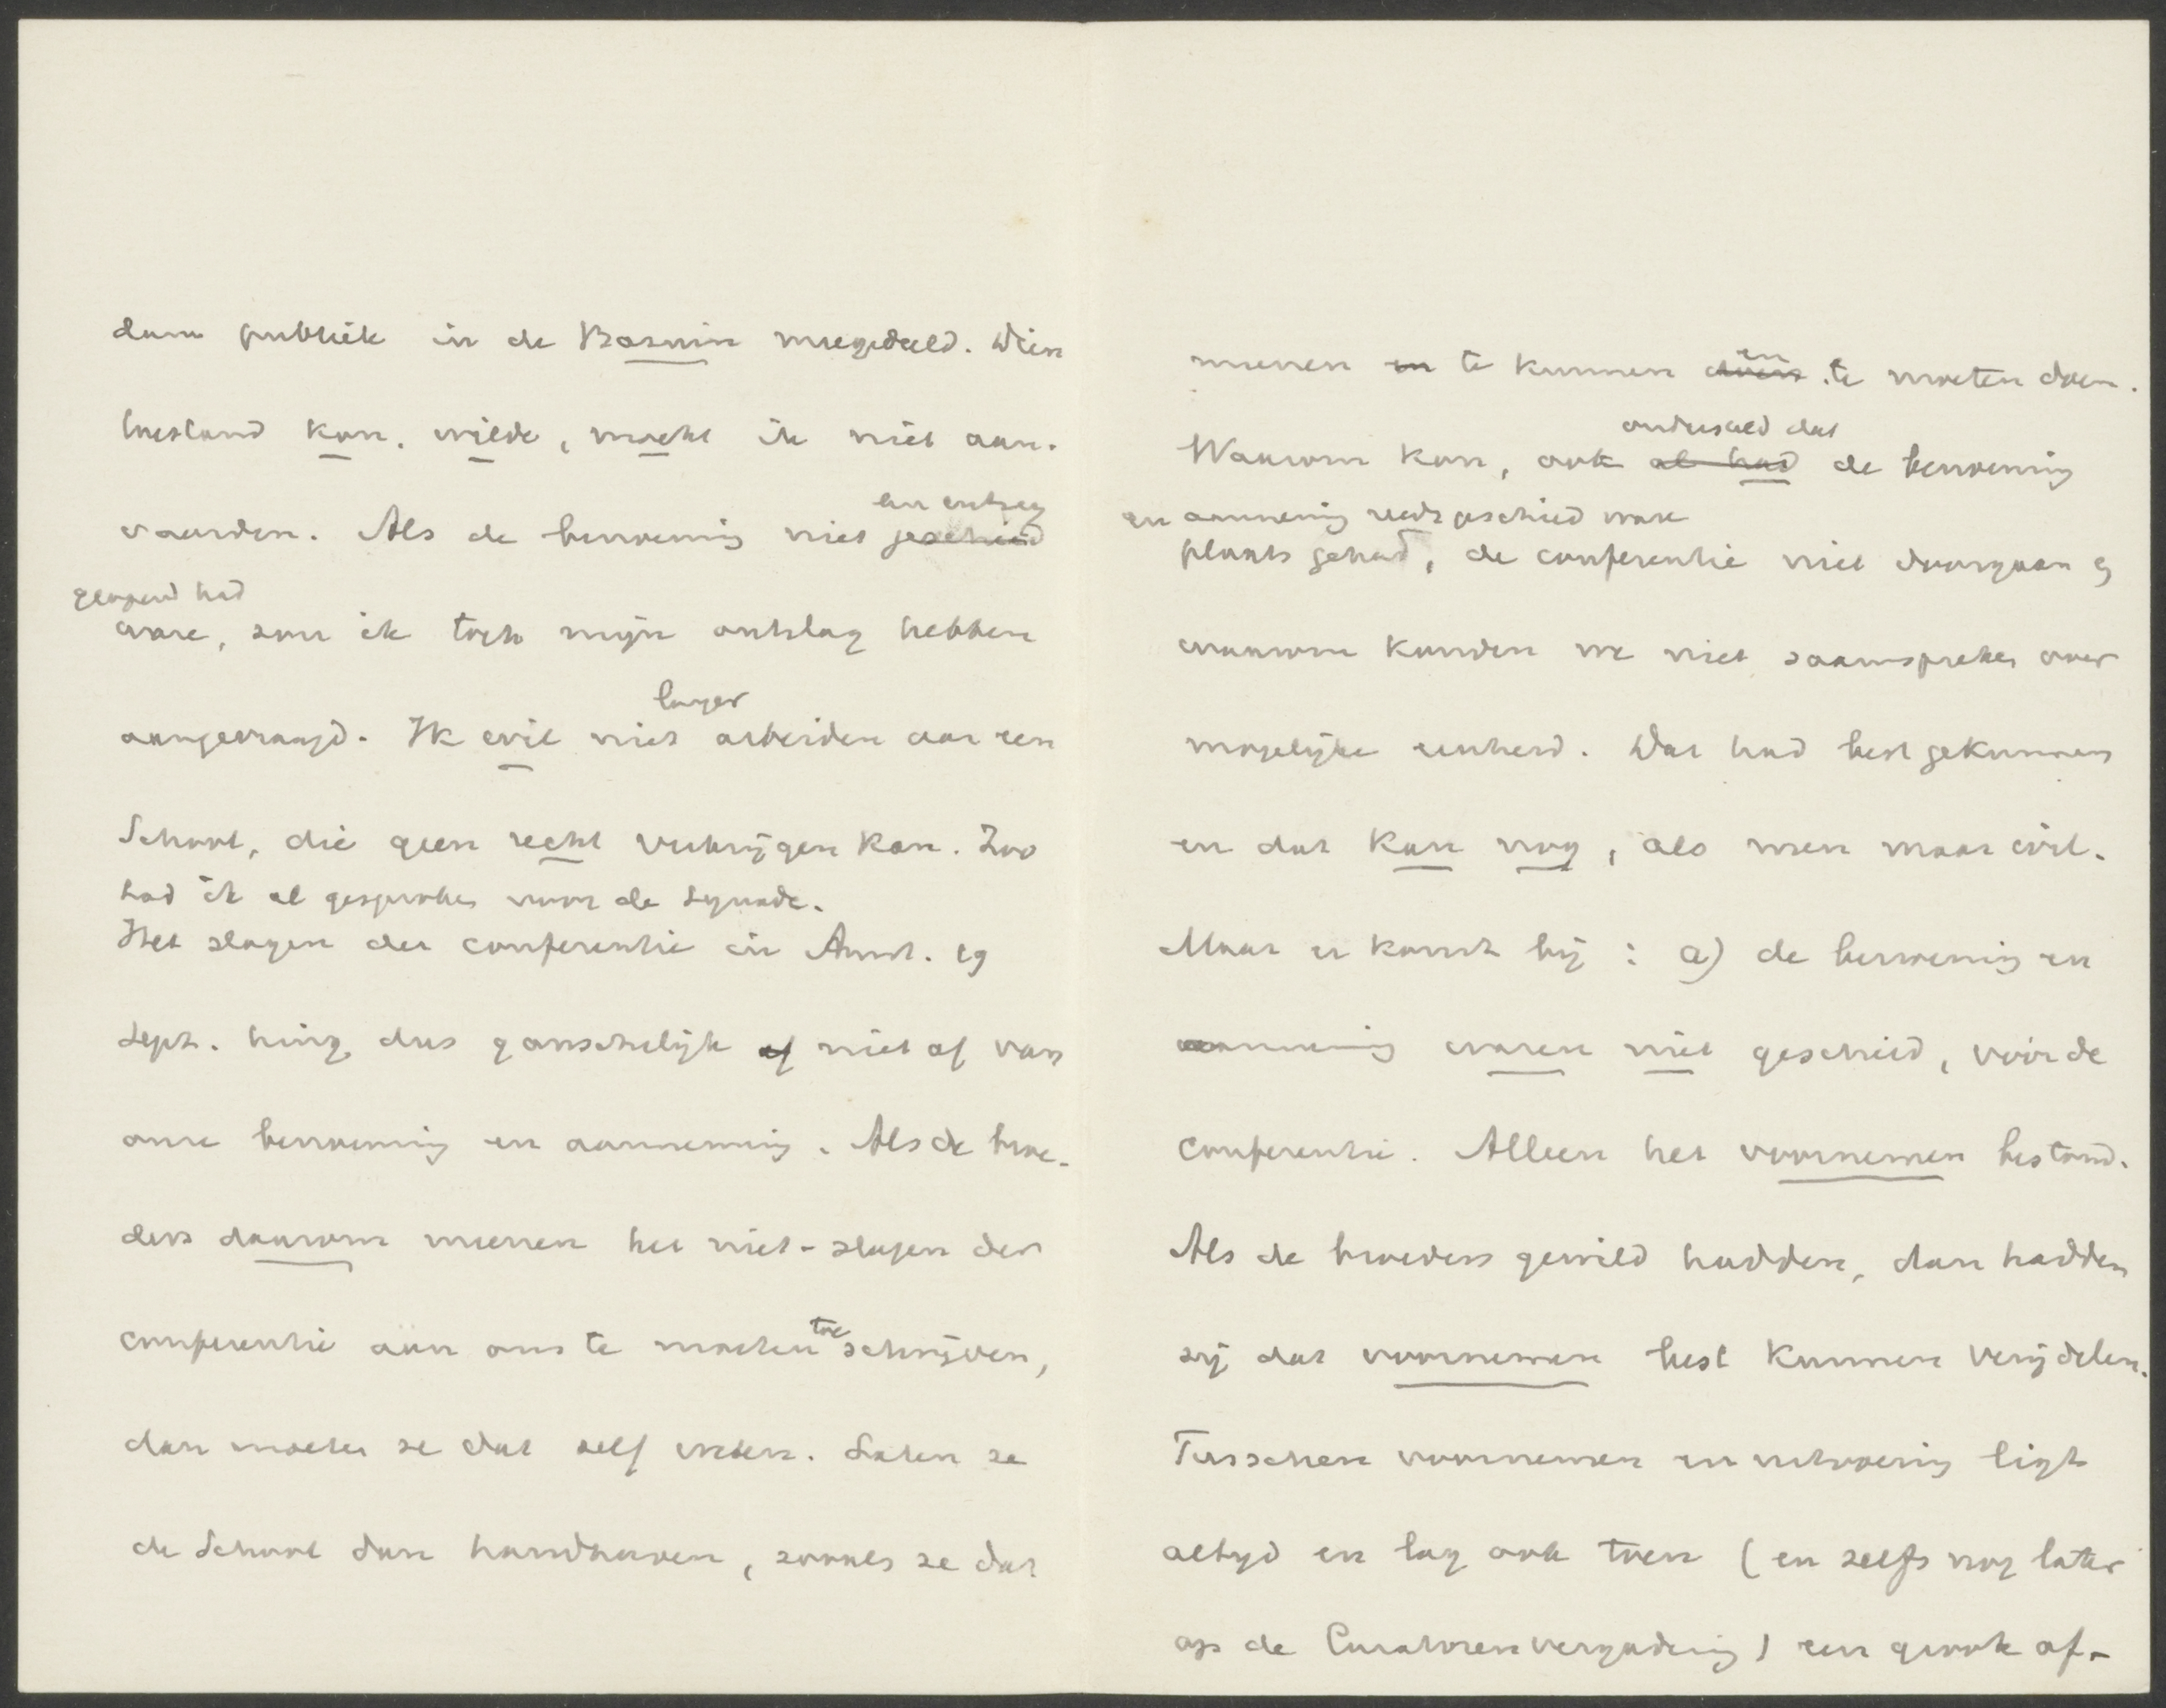 dam publiek in de Bazuin meegedeeld. Dien
toestand kon, wilde, mocht ik niet aan-
een uitweg
vaarden. Als de benoeming niet geschied
geopend had
ware, zou ik toch mijn ontslag hebben
langer
aangevraagd. Ik wil niet arbeiden aan een
School, die geen recht verkrijgen kan. Zoo
had ik al gesproken voor de Synode.
Het slagen der conferentie in Amst. 19
Sept. hing dus ganschelijk af niet af van
onze benoeming en aanneming. Als de broe-
ders daarom meenen het niet-slagen der
toe
conferentie aan ons te moeten schrijven,
dan moeten ze dat zelf weten. Laten ze
de School dan handhaven, zooals ze dat
en
meenen en te kunnen doen te moeten doen.
ondersteld dat
Waarom kon, ook al had de benoeming
en aanneming reeds geschied ware
plaats gehad, de conferentie niet doorgaan &
waarom konden we niet saamspreken over
mogelijke eenheid. Dat had best gekunnen
en dat kan nog, als men maar wil.
Maar er komt bij: a) de benoeming en
aanneming waren niet geschied, vóór de
conferentie. Alleen het voornemen bestond.
Als de broeders gewild hadden, dan hadden
zij dat voornemen best kunnen verijdelen.
Tusschen voornemen en uitvoering ligt
altijd en lag ook toen (en zelfs nog later
op de Curatorenvergadering) een groote af-